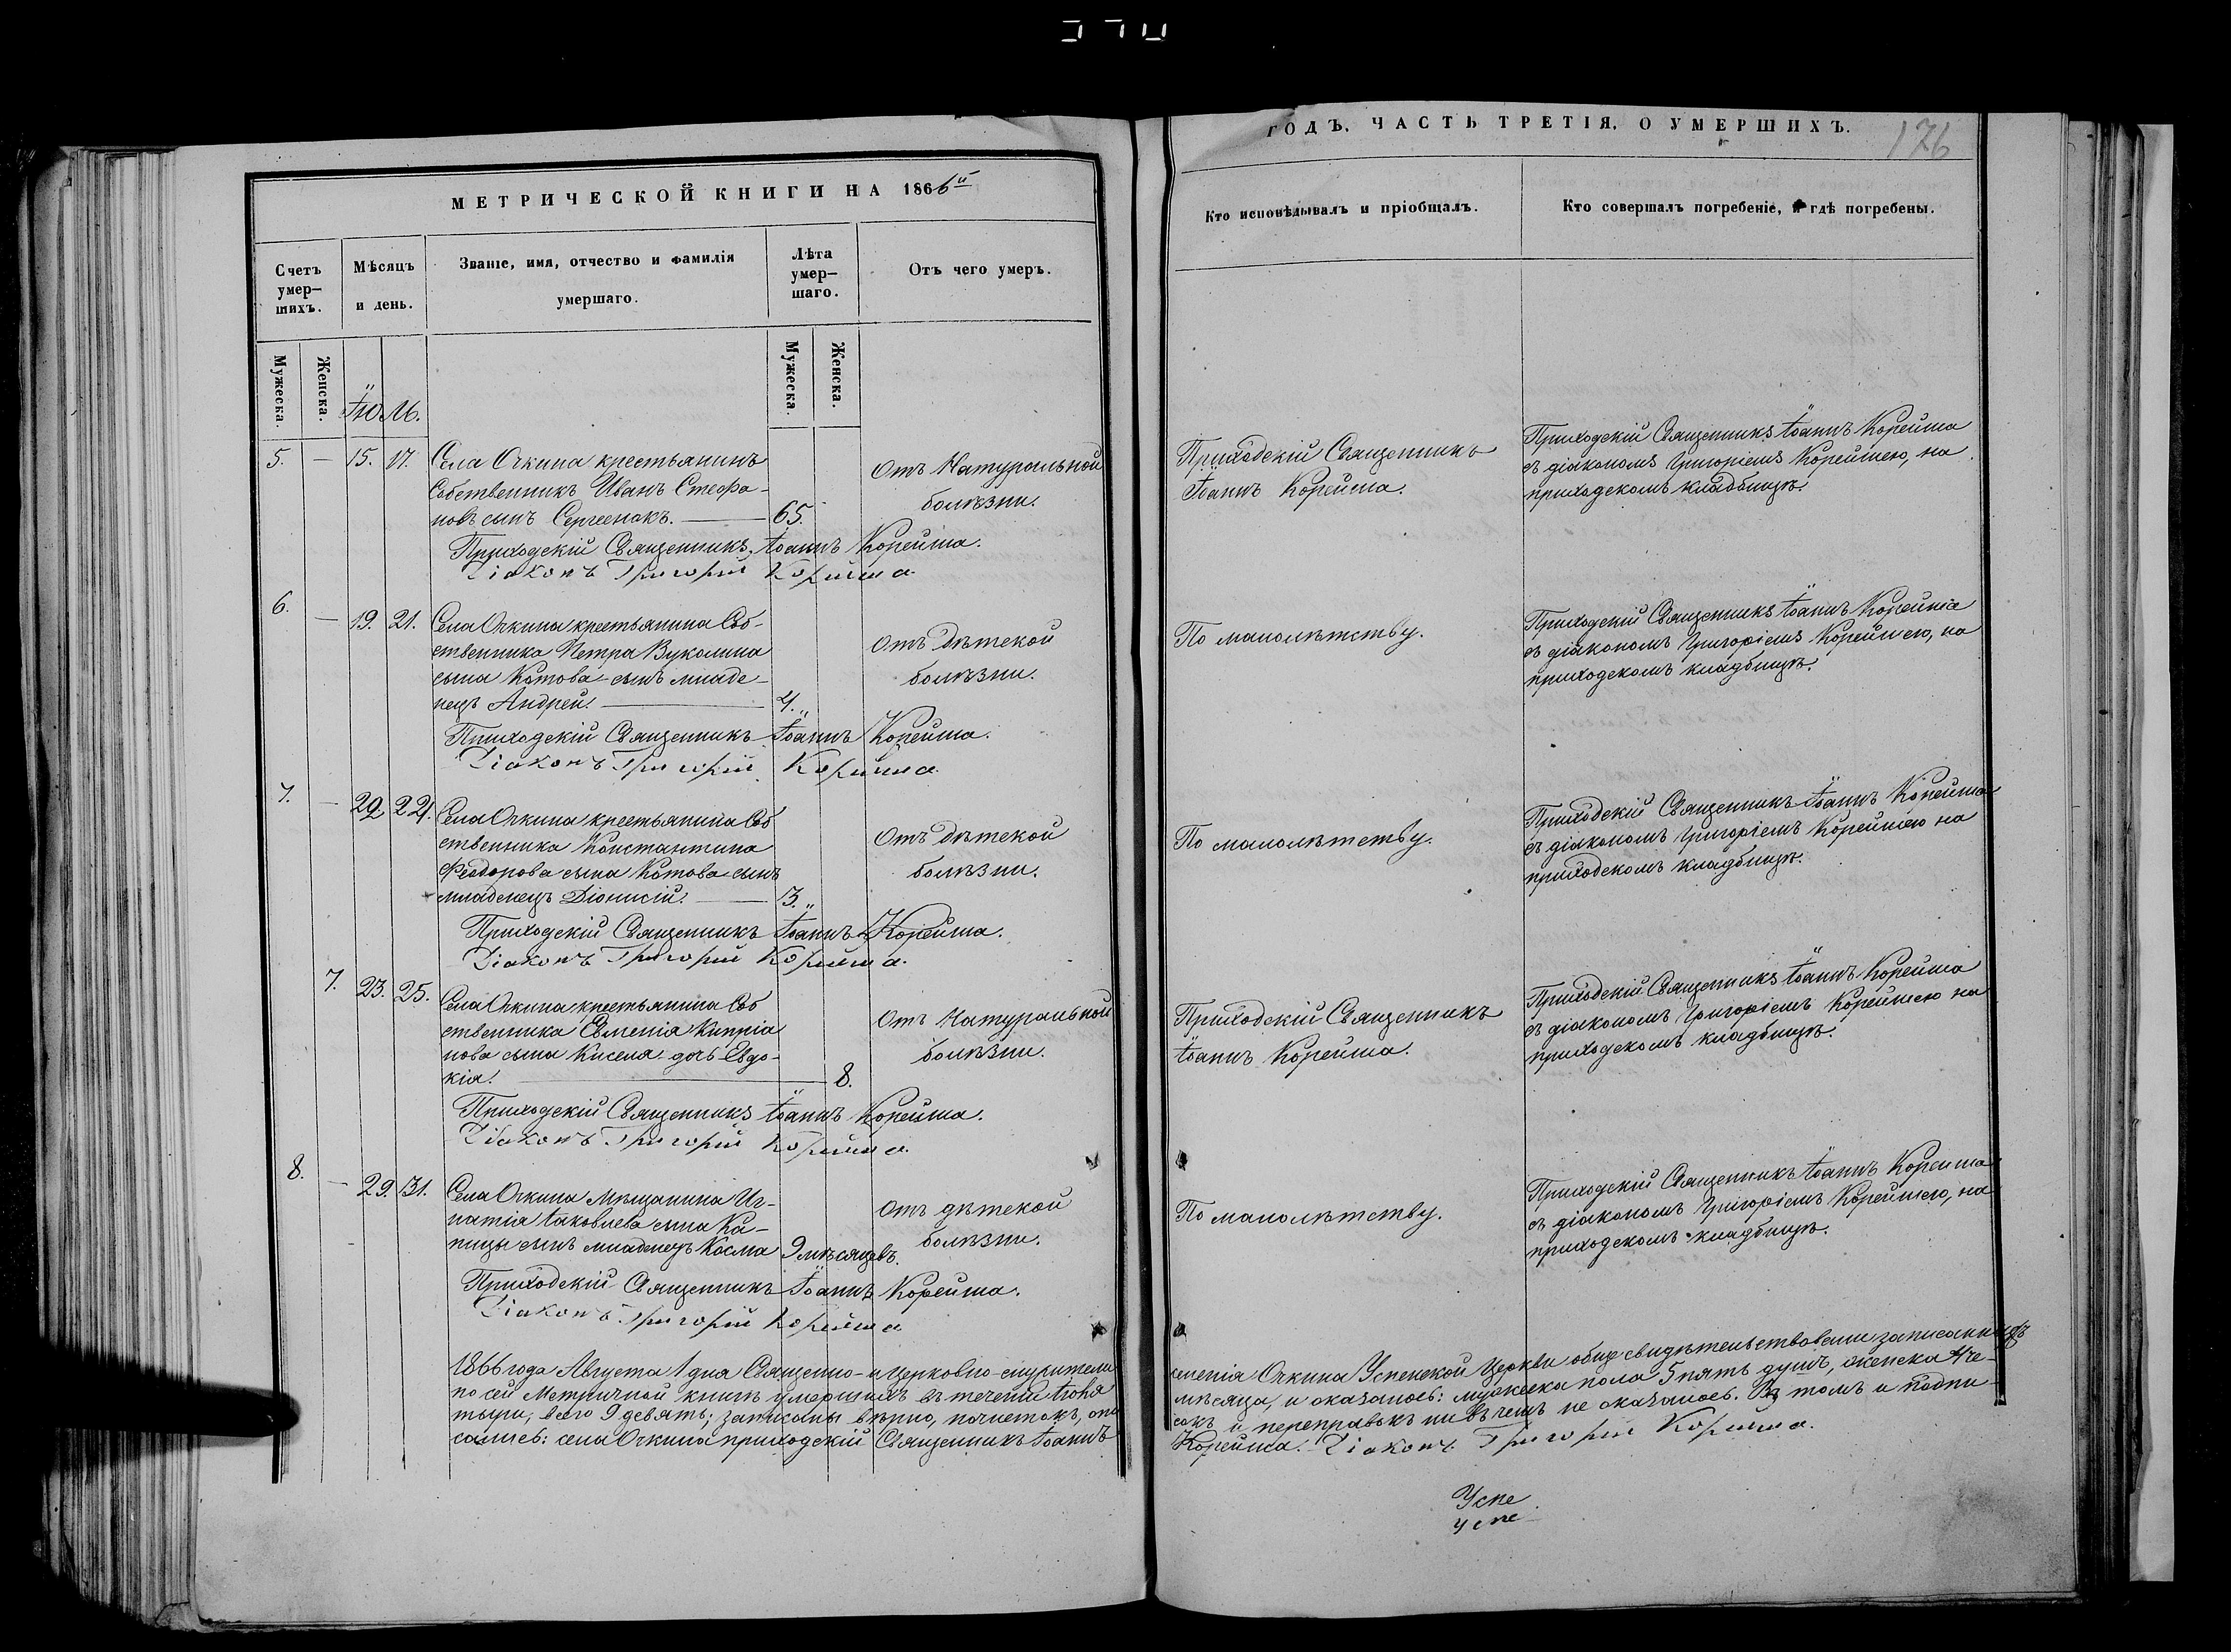 МЕТРИЧЕСКОЙ КНИГИ НА 1866й
Счетъ умер-шихъ.
Мѣсяцъ и день.
Званіе, имя, отчество и фамилія умершаго.
Лѣта умер-шаго.
Отъ чего умеръ.
Мужеска.
Женска.
Мужеска.
Женска.
Іюль.
5. — 15. 17. Села Очкина крестьянинъ
Собственникъ Иванъ Стефа-
новъ сынъ Сергеенокъ. — 65.
Отъ Натуральной
болѣзни.
Приходскій Священникъ Іоаннъ Корейша.
Діаконъ Григорій Корейша
6. — 19. 21. Села Очкина крестьянина Соб-
ственника Петра Вуколина
сына Котова сынъ младе-
нецъ Андрей. — 4.„
Отъ дѣтской
болѣзни.
Приходскій Священникъ Іоаннъ Корейша.
Діаконъ Григорій Корейша.
7. — 22. 24. Села Очкина крестьянина Соб
ственника Константина
Феодорова сына Котова сынъ
младенецъ Діонисій. — 3.„
Отъ дѣтской
болѣзни.
Приходскій Священникъ Іоаннъ Корейша.
Діаконъ Григорій Корейша.
7. 23. 25. Села Очкина крестьянина Соб
ственника Евменія Кипріа
нова сына Киселя дочь Евдо-
кія. — 8.
Отъ Натуральной
болѣзни.
Приходскій Священникъ Іоаннъ Корейша.
Діаконъ Григорій Корейша.
8. — 29. 31. Села Очкина Мѣщанина Иг-
натія Іаковлева сына Ка-
пицы сынъ младенецъ Косма 9 мѣсяцевъ.
Отъ дѣтской
болѣзни.
Приходскій Священникъ Іоаннъ Корейша.
Діаконъ Григорій Корейша
1866 года Августа 1 дня Священно- и церковно-служители
по сей Метричной книгѣ умершихъ въ теченіи Іюля
тыри, всего 9 девять; записаны вѣрно, почистокъ, опи
сались: села Очкина приходскій Священникъ Іоаннъ
ГОДЪ, ЧАСТЬ ТРЕТІЯ, О УМЕРШИХЪ.
176
Кто исповѣдывалъ и пріобщалъ.
Кто совершалъ погребеніе, и гдѣ погребены.
Приходскій Священникъ
Іоаннъ Корейша.
Приходскій Священникъ Іоаннъ Корейша
съ діакономъ Григоріемъ Корейшею, на
приходскомъ кладбищѣ.
По малолѣтству.
Приходскій Священникъ Іоаннъ Корейша
съ діакономъ Григоріемъ Корейшею, на
приходскомъ кладбищѣ.
По малолѣтству.
Приходскій Священникъ Іоаннъ Корейша
съ діакономъ Григоріемъ Корейшею на
приходскомъ кладбищѣ.
Приходскій Священникъ
Іоаннъ Корейша.
Приходскій Священникъ Іоаннъ Корейша
съ діакономъ Григоріемъ Корейшею на
приходскомъ кладбищѣ.
По малолѣтству.
Приходскій Священникъ Іоаннъ Корейша
съ діакономъ Григоріемъ Корейшею, на
приходскомъ кладбищѣ.
селенія Очкина Успенской Церкви обще свидѣтельствовали записанныхъ
мѣсяца, и оказалось: мужеска пола 5 пять душъ, женска 4 че-
сокъ и переправокъ ни въ чемъ не оказалось. Въ томъ и подпи-
Корейша. Діаконъ Григорій Корейша.
Успе
успе